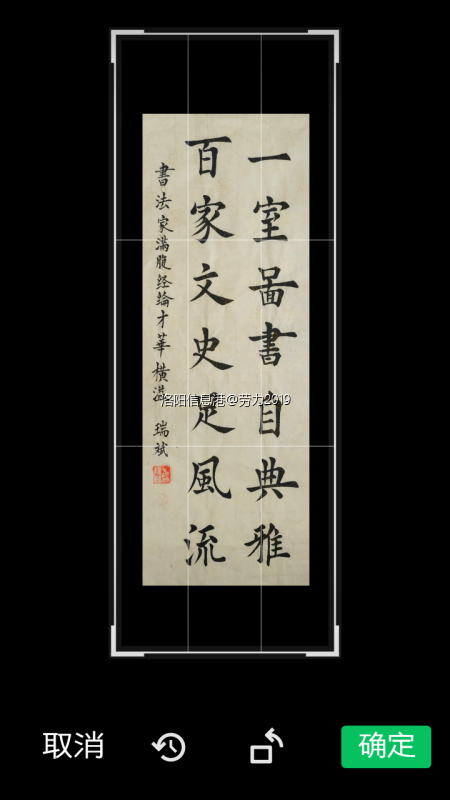 一室啚書自典雅
百家文史是風流
書法家满腹经綸才華横溢
瑞斌
洛阳信息港@劳力2019
取消
确定